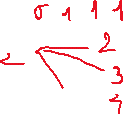 0 1 1 1
2
3